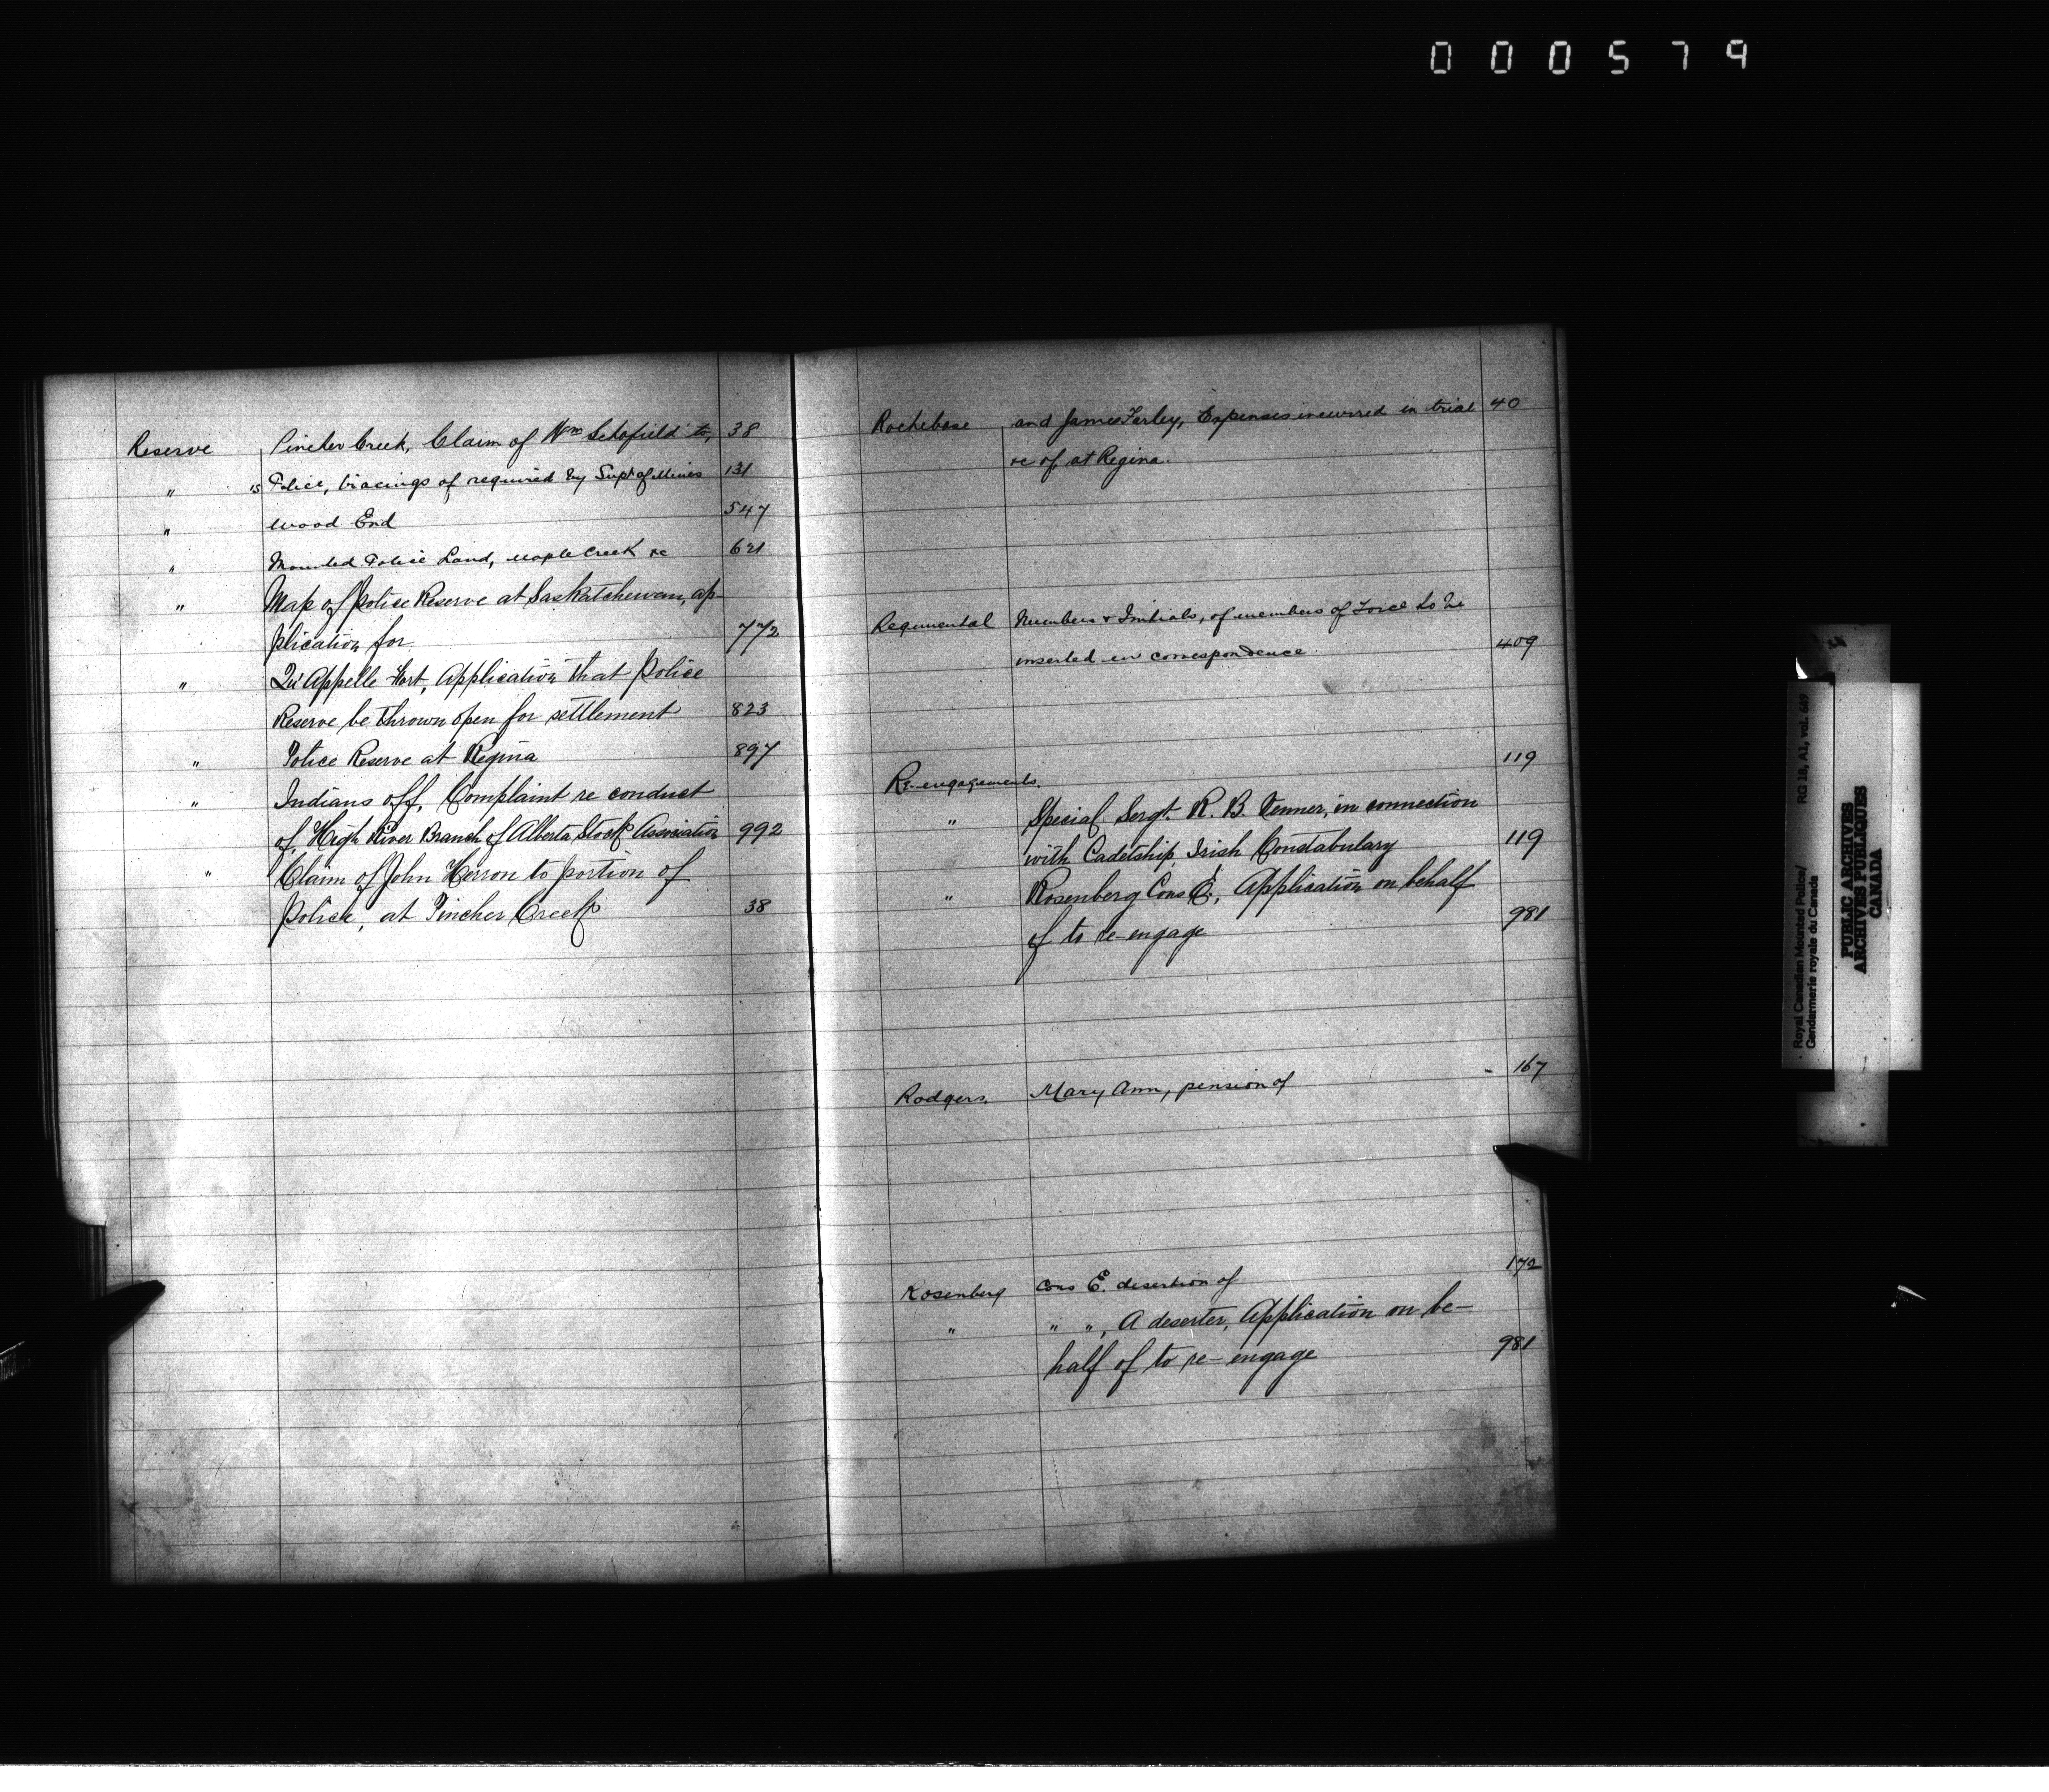 000579
Reserve Pincher Creek, Claim of Wm Schofield to, 38
" s Police, tracings of required by Supt of Mines 131
" Wood End 547
" Mounted Police Land, Maple Creek &c 621
" Map of Police Reserve at Saskatchewan, ap-
plication for. 772
" Qu'Appelle Fort, Application that Police
Reserve be thrown open for settlement 823
" Police Reserve at Regina 897
" Indians off, Complaint re conduct
of High River Branch of Alberta Stock Association 992
" Claim of John Herron to portion of
Police, at Pincher Creek 38
Rochebase and James Farley, Expenses incurred in trial 40
&c of at Regina.
Regimental Numbers & Initials, of members of Force to be
inserted in correspondence 409
Re-engagements. 119
" Special Sergt. R. B. Tenner, in connection
with Cadetship, Irish Constabulary 119
" Rosenberg Cons E., Application on behalf
of to re-engage 981
Rodgers. Mary Ann, pension of - 167
Rosenberg Cons E. desertion of 172
" " ", A deserter, Application on be-
half of to re-engage 981
Royal Canadian Mounted Police/ RG 18, A1, vol. 669
Gendarmerie royale du Canada
PUBLIC ARCHIVES
ARCHIVES PUBLIQUES
CANADA